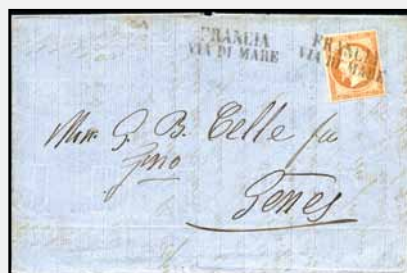 FRANCIA
VIA DI MARE
FRANCIA
VIA DI MARE
G. B. Celle fu
Gênes